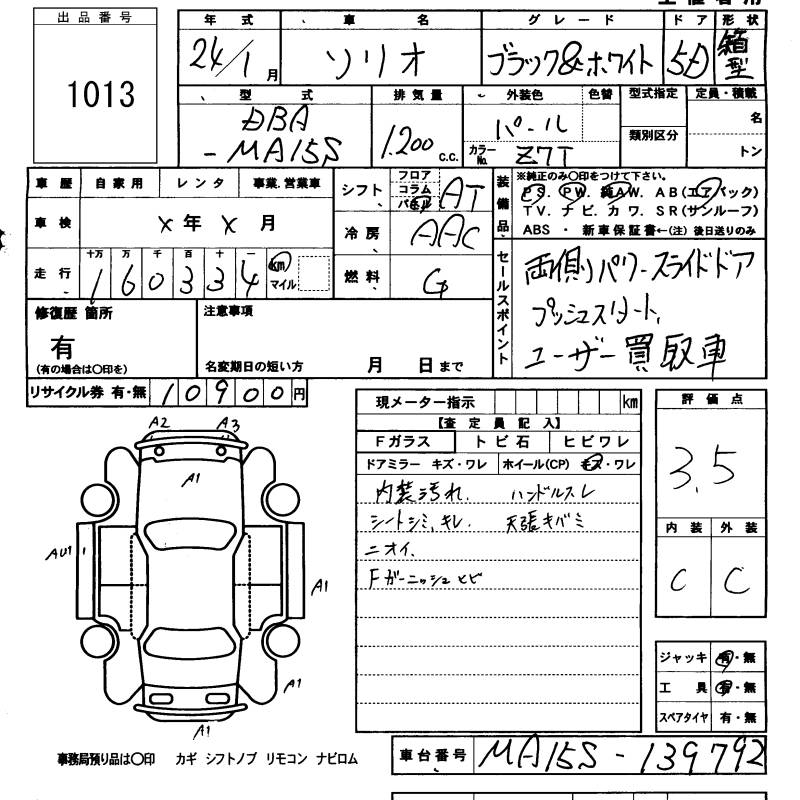 出品番号
1013
年式 車名 グレード ドア 形状
24/1月 ソリオ ブラック&ホワイト 5D 箱型
型式 排気量 外装色 色替 型式指定 定員・積載
DBA
-MA15S
1.200 c.c.
パール
カラーNo. Z7T
類別区分
名
トン
車歴 自家用 レンタ 事業.営業車
シフト フロア コラム パネル AT
車検 X年X月
冷房 AAC
走行 十万 万 千 百 十 一
160334 km マイル
燃料 G
装備品
※純正のみ〇印をつけて下さい。
PS. PW. 純AW. AB(エアバック)
TV. ナビ. カワ. SR(サンルーフ)
ABS ・ 新車保証書←(注) 後日送りのみ
セールスポイント
両側パワースライドドア
プッシュスタート,
ユーザー買取車
修復歴 箇所
有
(有の場合は〇印を)
注意事項
名変期日の短い方 月 日まで
リサイクル券 有・無 10900円
現メーター指示 km
【査定員記入】
Fガラス トビ石 ヒビワレ
ドアミラー キズ・ワレ ホイール(CP) キズ・ワレ
内装汚れ. ハンドルスレ
シートシミ、キレ. 天張キバミ
ニオイ.
Fガーニッシュヒビ
評価点
3.5
内装 外装
C C
A2 A3
A1
AU1
A1
A1
A1
ジャッキ 有・無
工具 有・無
スペアタイヤ 有・無
事務局預り品は〇印 カギ シフトノブ リモコン ナビロム
車台番号 MA15S-139792